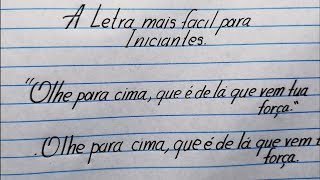 A Letra mais facil para
Iniciantes.
"Olhe para cima, que é de lá que vem tua
força."
. Olhe para cima, que é de lá que vem t
força.